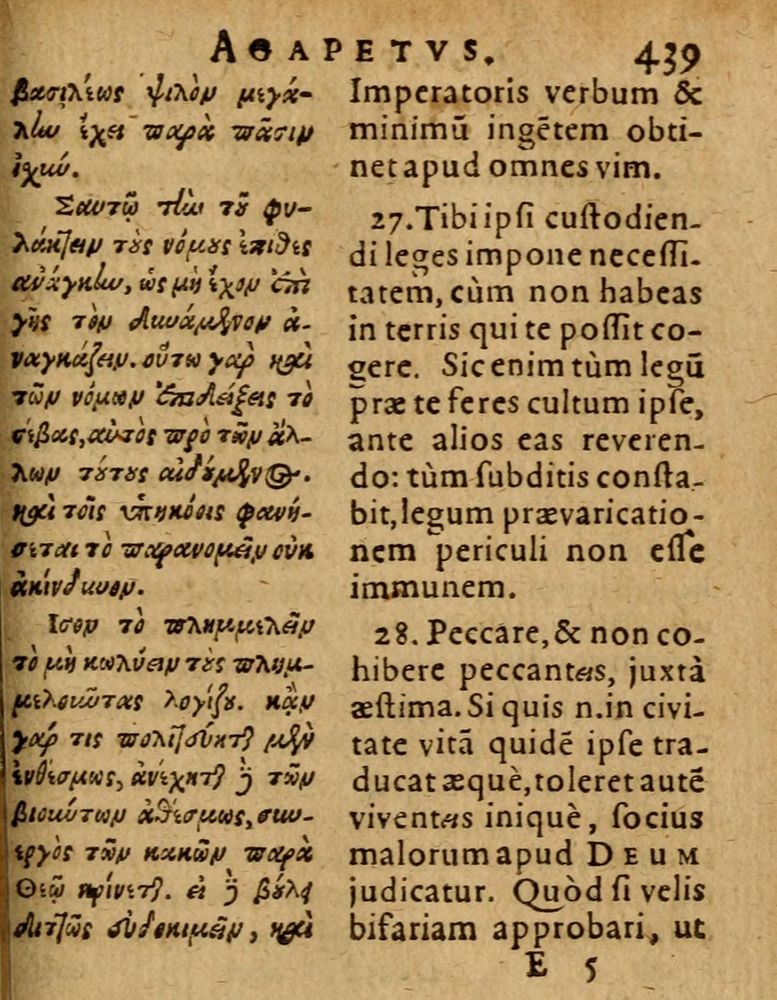 ΑΘΑΡΕΤVS. 439
βασιλέως ψιλὸν μεγά-
λην ἔχει παρὰ πᾶσιν
ἰχύν.
Σαυτῷ τὴν τοῦ φυ-
λάττειν τοὺς νόμους ἐπιθὲς
ἀνάγκην, ὡς μὴ ἔχον ἐπὶ
γῆς τὸν δυνάμενον ἀ-
ναγκάζειν. οὕτω γὰρ καὶ
τῶν νόμων ἐπιδείξεις τὸ
σέβας, αὐτὸς πρὸ τῶν ἄλ-
λων τούτους αἰδούμενος.
καὶ τοῖς ὑπηκόοις φανή-
σεται τὸ παρανομεῖν οὐκ
ἀκίνδυνον.
Ισον τὸ πλημμελεῖν
τὸ μὴ κωλύειν τοὺς πλημ-
μελοῦντας λογίζου. κἄν
γάρ τις πολιτεύηται μὲν
ἐνθέσμως, ἀνέχηται δὲ τῶν
βιούντων ἀθέσμως, συν-
εργὸς τῶν κακῶν παρὰ
Θεῷ κρίνεται. εἰ δὲ βούλει
διττῶς εὐδοκιμεῖν, καὶ
Imperatoris verbum &
minimū ingētem obti-
net apud omnes vim.
27. Tibi ipſi cuſtodien-
di leges impone neceſſi-
tatem, cùm non habeas
in terris qui te poſſit co-
gere. Sic enim tùm legū
præ te feres cultum ipſe,
ante alios eas reveren-
do: tùm ſubditis conſta-
bit, legum prævaricatio-
nem periculi non eſſe
immunem.
28. Peccare, & non co-
hibere peccantes, juxtà
æſtima. Si quis n. in civi-
tate vitā quidē ipſe tra-
ducat æquè, toleret autē
viventes iniquè, ſocius
malorum apud DEUM
judicatur. Quòd ſi velis
bifariam approbari, ut
E 5